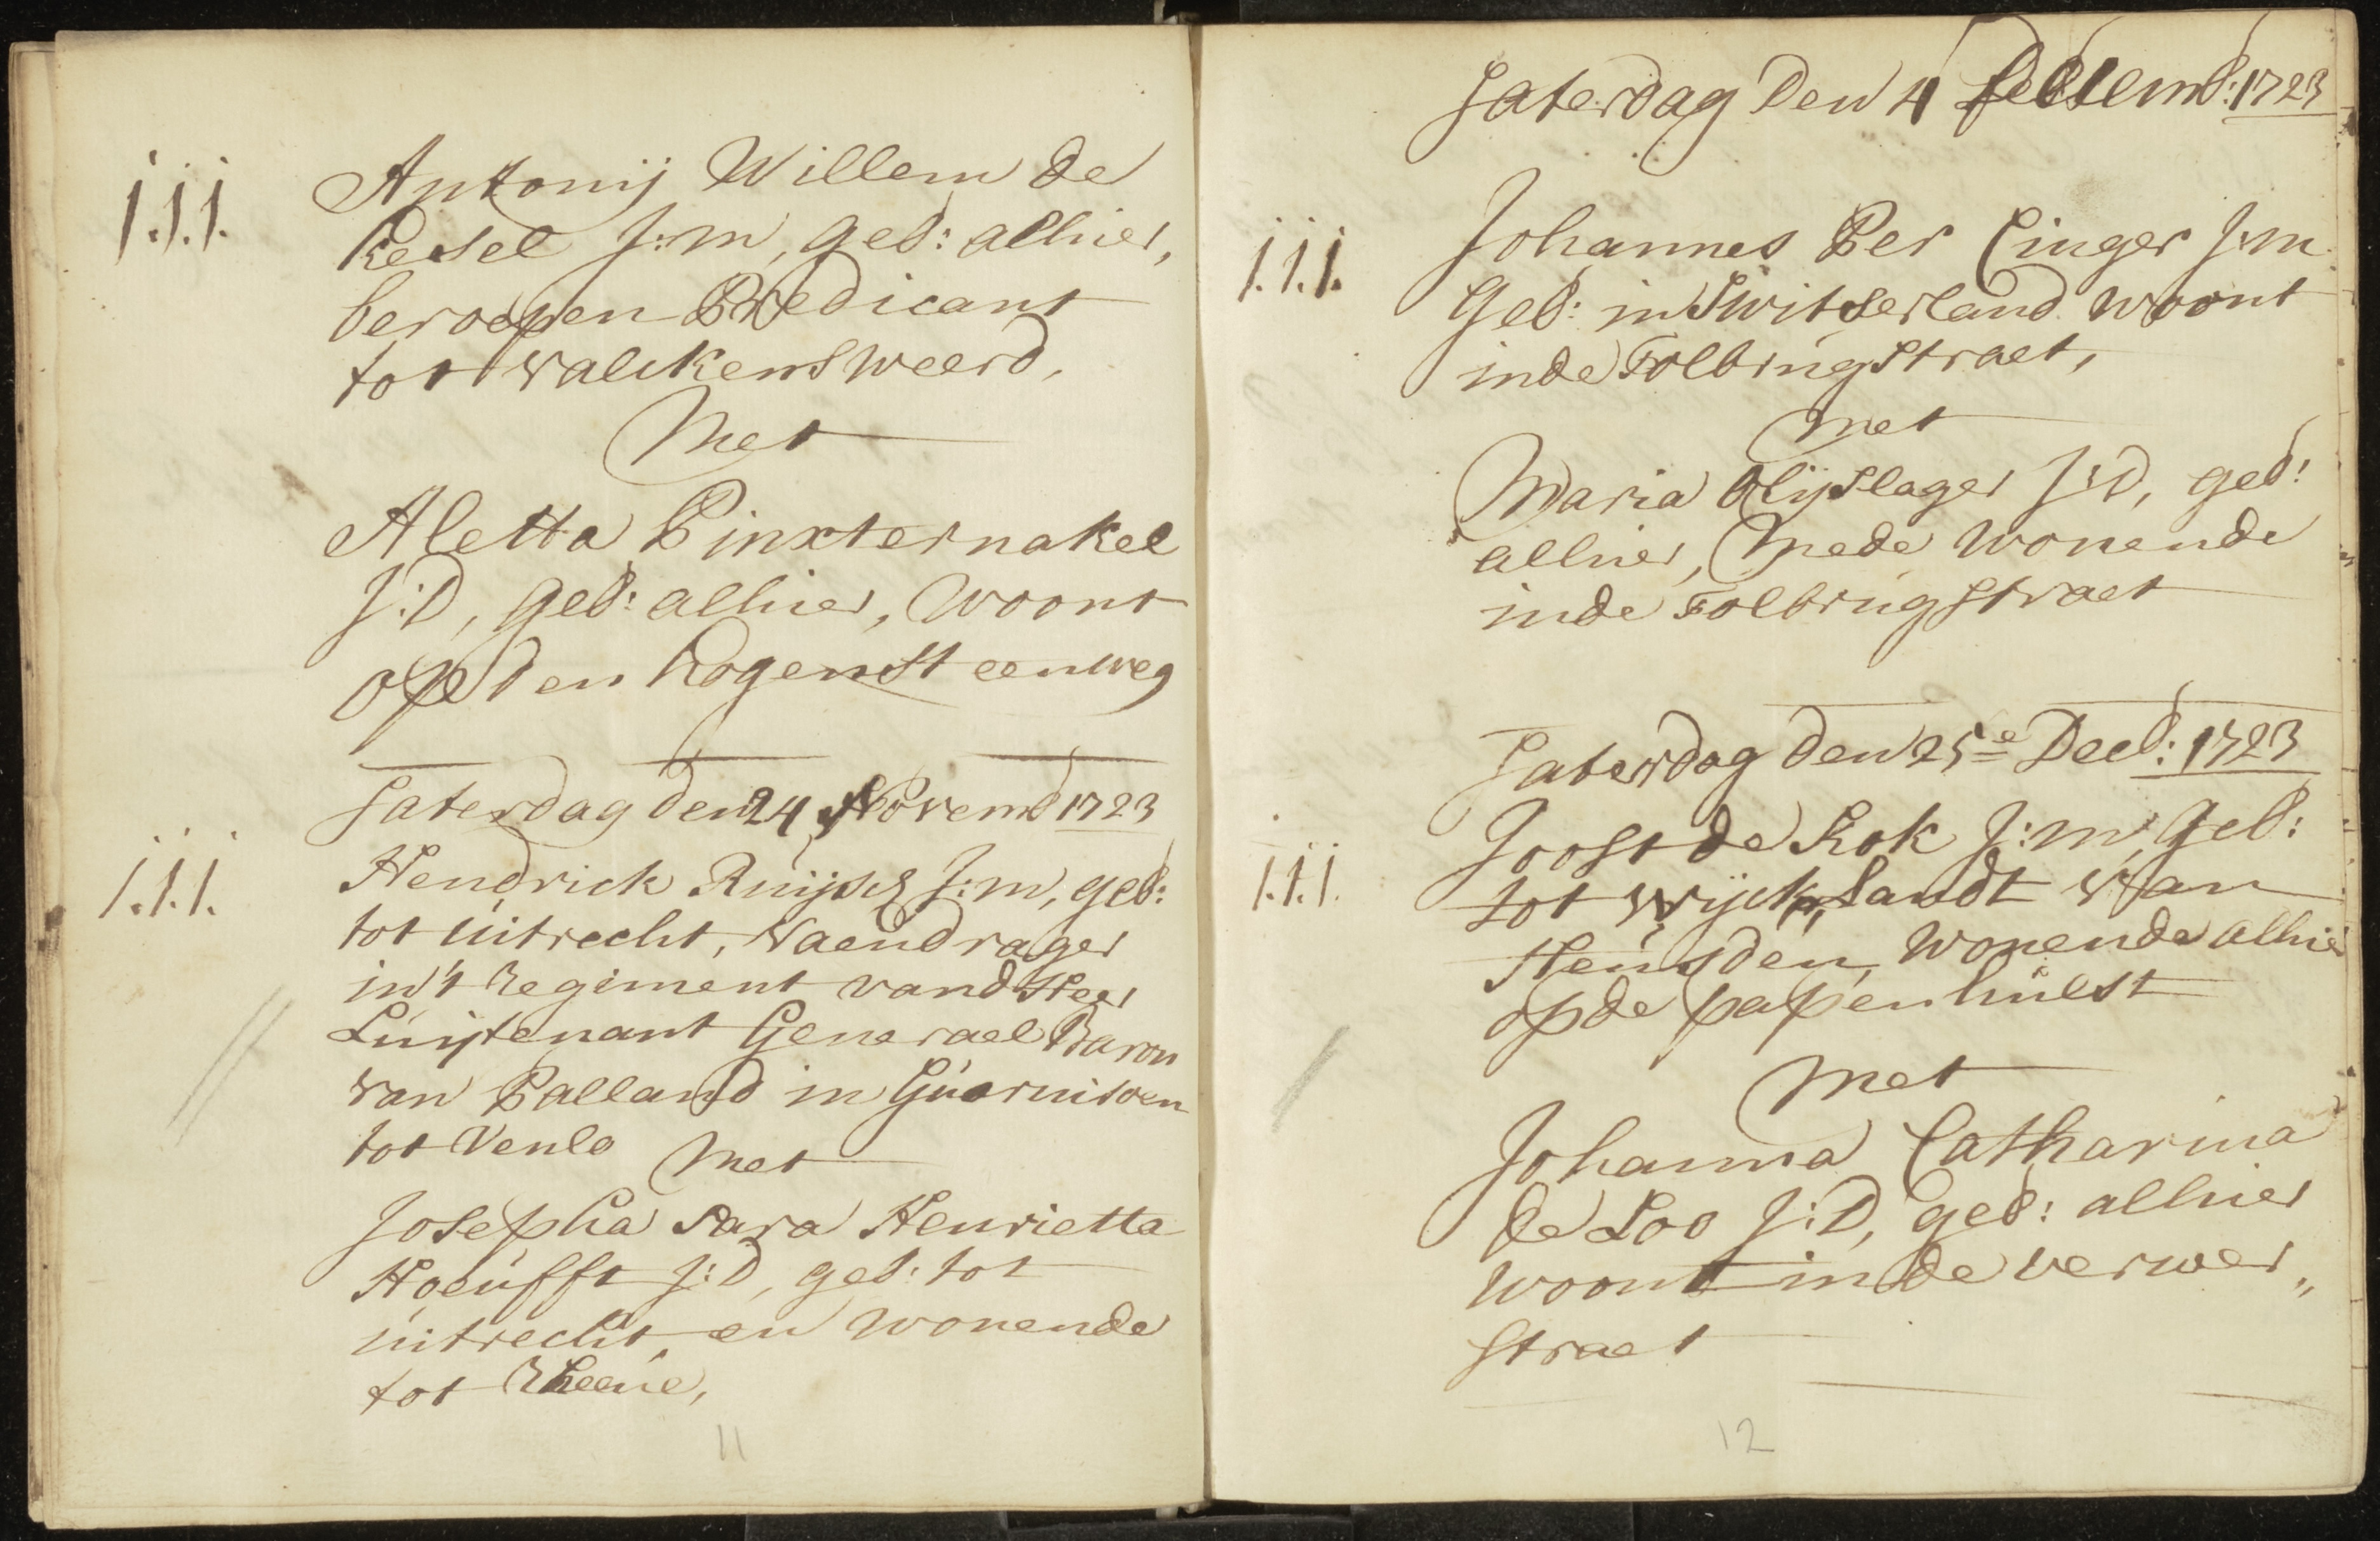 1.1.1.
Antonij Willem de
Kesel J:m, geb: alhier,
beroepen Predicant
tot valckensweerd,
Met
Aletta Pinxternakel
J:D, geb: alhier, woont
op den hogen Steenweg
Saterdag den 24 Novemb 1723
1.1.1.
Hendrick Ruijsch J:m, geb:
tot uitrecht, vaendrager
in't Regiment vand Heer
Luijtenant Generael Baron
van Palland in Guarnisoen
tot Venlo Met
Josepha Sara Henrietta
Hoeufft J:D, geb: tot
uitrecht en wonende
tot Rheene,
11
Saterdag den 4 Decemb: 1723
1.1.1.
Johannes Per Cinger J:m
Geb: in Switserland woont
inde Tolbrugstraet,
Met
Maria Olijslager J:D, geb:
alhier, Mede wonende
inde Tolbrugstraet
Saterdag den 25e Decb: 1723
1.1.1.
Joost de Kok J:m, geb:
tot wijck, landt van
Heusden, wonende alhier
op de papenhulst
Met
Johanna Catharina
de Loo J:D, geb: alhier
woont in de verwer„
straet
12